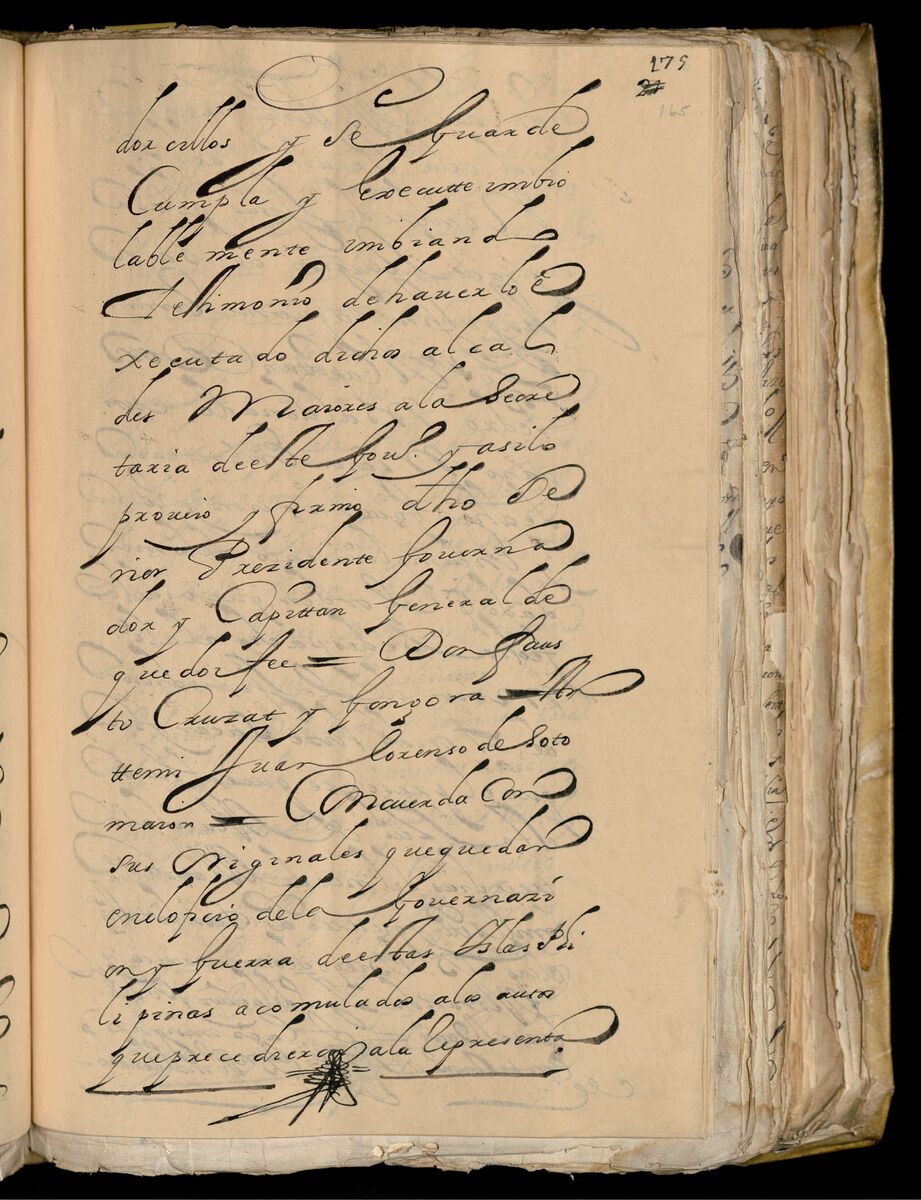 175
21
165
dorcillos y se Guarde
Cumpla y Execute imbio
lable mente imbiando
Testimonio dehaverlo e
xecutado dichos alcal
des Maiores ala Secre
taria deeste Gou.º y asilo
proueio y firmo dho Se
ñor Prezidente Gouerna
dor y Capittan General de
que doi fee = Don faus
to Cruzat y Gongora = An
ttemi Juan Lorenso de Soto
maior = Concuerda Con
sus Originales que quedan
enelofício dela Gouernazi
on y Guerra deestas Islas Phi
lipinas acomulados alos autos
que precedieron ala Representa